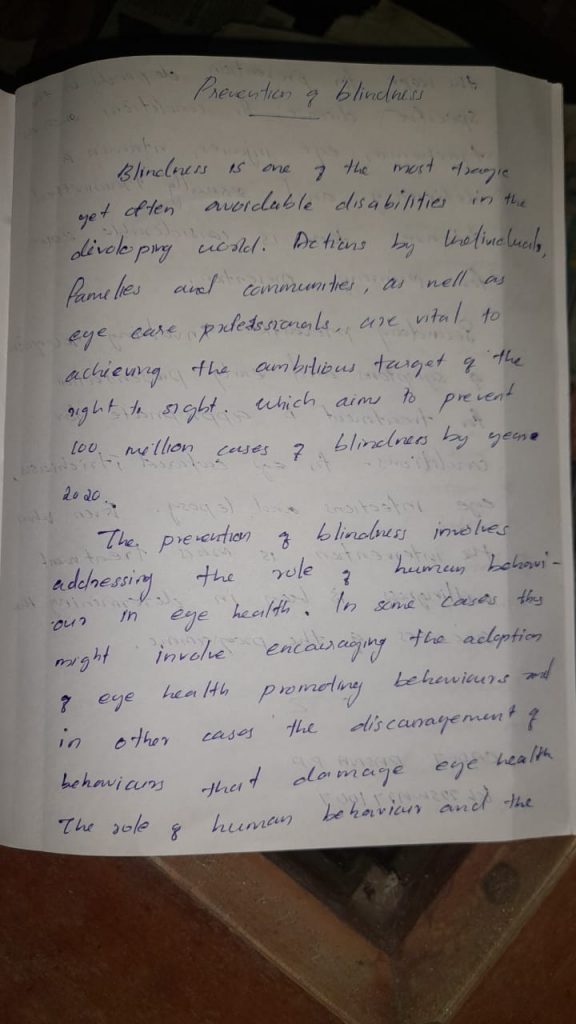 Prevention of blindness
Blindness is one of the most tragic
yet often avoidable disabilities in the
developing world. Actions by individuals,
families and communities, as well as
eye care professionals, are vital to
achieving the ambitious target of the
right to sight. which aims to prevent
100 million cases of blindness by year
2020.
The prevention of blindness involves
addressing the role of human behavi-
our in eye health. In some cases this
might involve encouraging the adoption
of eye health promoting behaviours and
in other cases the discouragement of
behaviours that damage eye health
The role of human behaviour and the